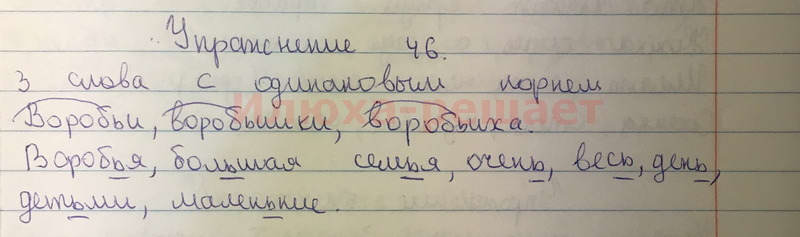 Упражнение 46.
3 слова с одинаковым корнем
Илюха-решает
Воробьи, воробьишки, воробьиха.
Воробья, большая семья, очень, весь, день,
детьми, маленькие.